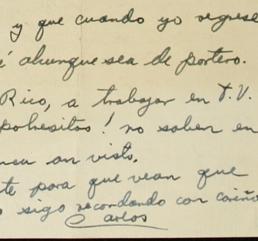 y que cuando yo regrese
ahunque sea de portero.
Rico, a trabajar en T.V.
pobresitos! no saben en
an visto.
te para que vean que
sigo recordando con cariño
Carlos